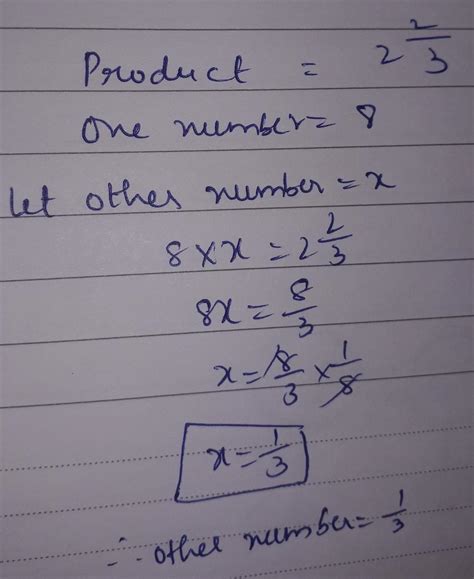 Product = 2 2/3
One number = 8
let other number = x
8 × x = 2 2/3
8x = 8/3
x = 8/3 × 1/8
x = 1/3
∴ other number = 1/3